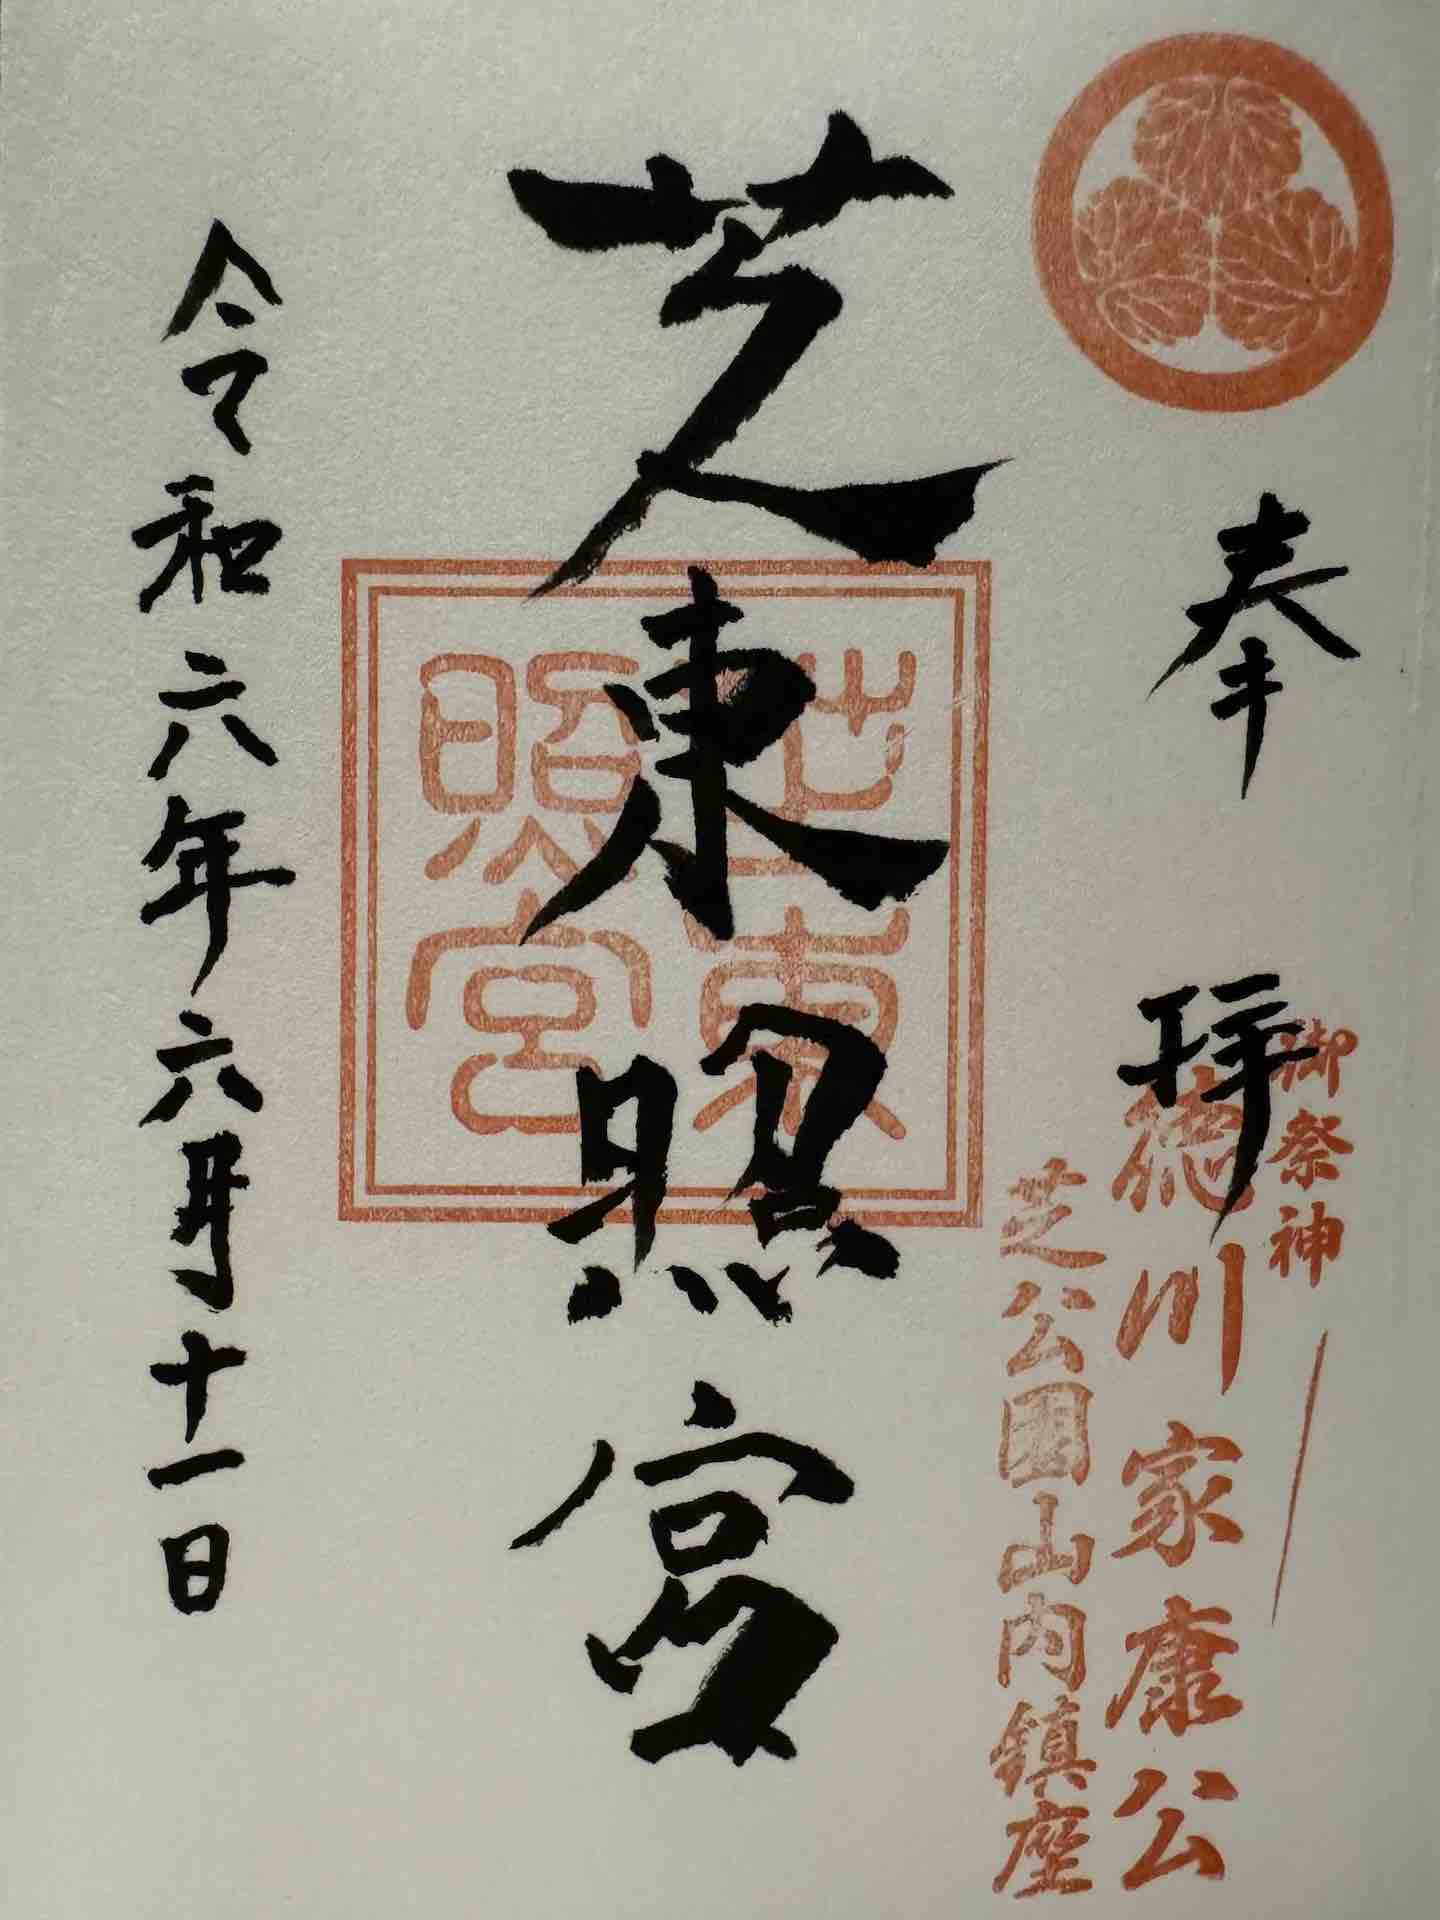 奉拝
御祭神
徳川家康公
芝公園山内鎮座
芝東照宮
芝東
照宮
令和六年六月十一日